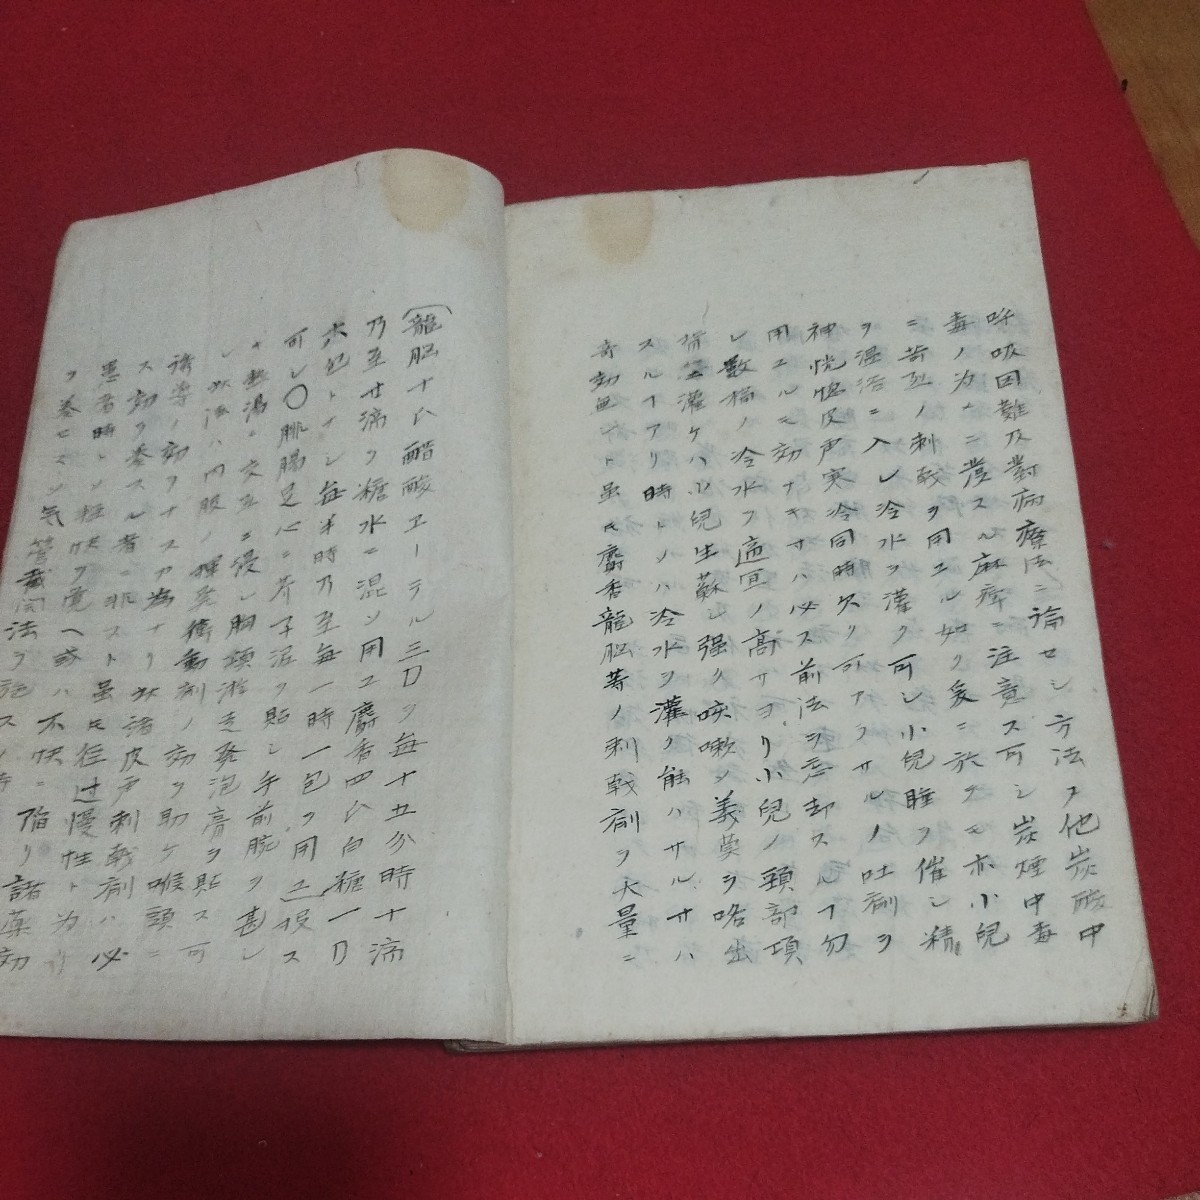 呼吸困難及對病療法ニ論セシ方法ヌ他炭酸中
毒ノ為メニ発スル麻痺ニ注意ス可シ炭煙中毒
ニ苛烈ノ刺戟ヲ用ユル如ク爰ニ於テモ亦小児
ヲ温浴ニ入レ冷水ヲ潅ク可シ小児睡ヲ催シ精
神恍惚皮声寒冷同時欠リ可アラサルノ吐剤ヲ
用ユルモ効ナキトハ必ス前法ヲ忘却スルヿ勿
レ数桶ノ冷水ヲ適宜ノ高サヨリ小児ノ頸部項
ニ灌ケハ児生蘇シ强ク咳嗽シ義莫ヲ咯出
スルヿアリ時トシハ冷水ヲ灌ク能ハサルサハ
奇効無シト虽モ麝香龍脳等ノ刺戟剤ヲ大量ニ
(龍脳十ㇶ醋酸エーテル三D ヲ毎十五分時十滴
乃至廿滴ヲ糖水ニ混シ用ユ麝香四ㇶ白糖一D
六包トナシ毎半時乃至毎一時一包ヲ用ユ) 服ス
可シ〇腓腸足心ニ芥子泥ヲ貼シ手前腕ヲ甚シ
キ熱湯ニ交互ニ浸シ胸頭游走発泡膏ヲ貼ス可
シ 此法ハ内服ノ揮発衝動剤ノ効ヲ助ケ喉頭ニ
誘導ノ効ヲナス為ナリ 此諸皮戸刺戟剤ハ必
ス効ヲ奏スル者ニ非スト虽モ経過慢性ト為リ
患者時トシ軽快ヲ覚ヘ或ハ不快ニ陥リ諸薬効
ヲ奏セスシ気管截開法ヲ施ス